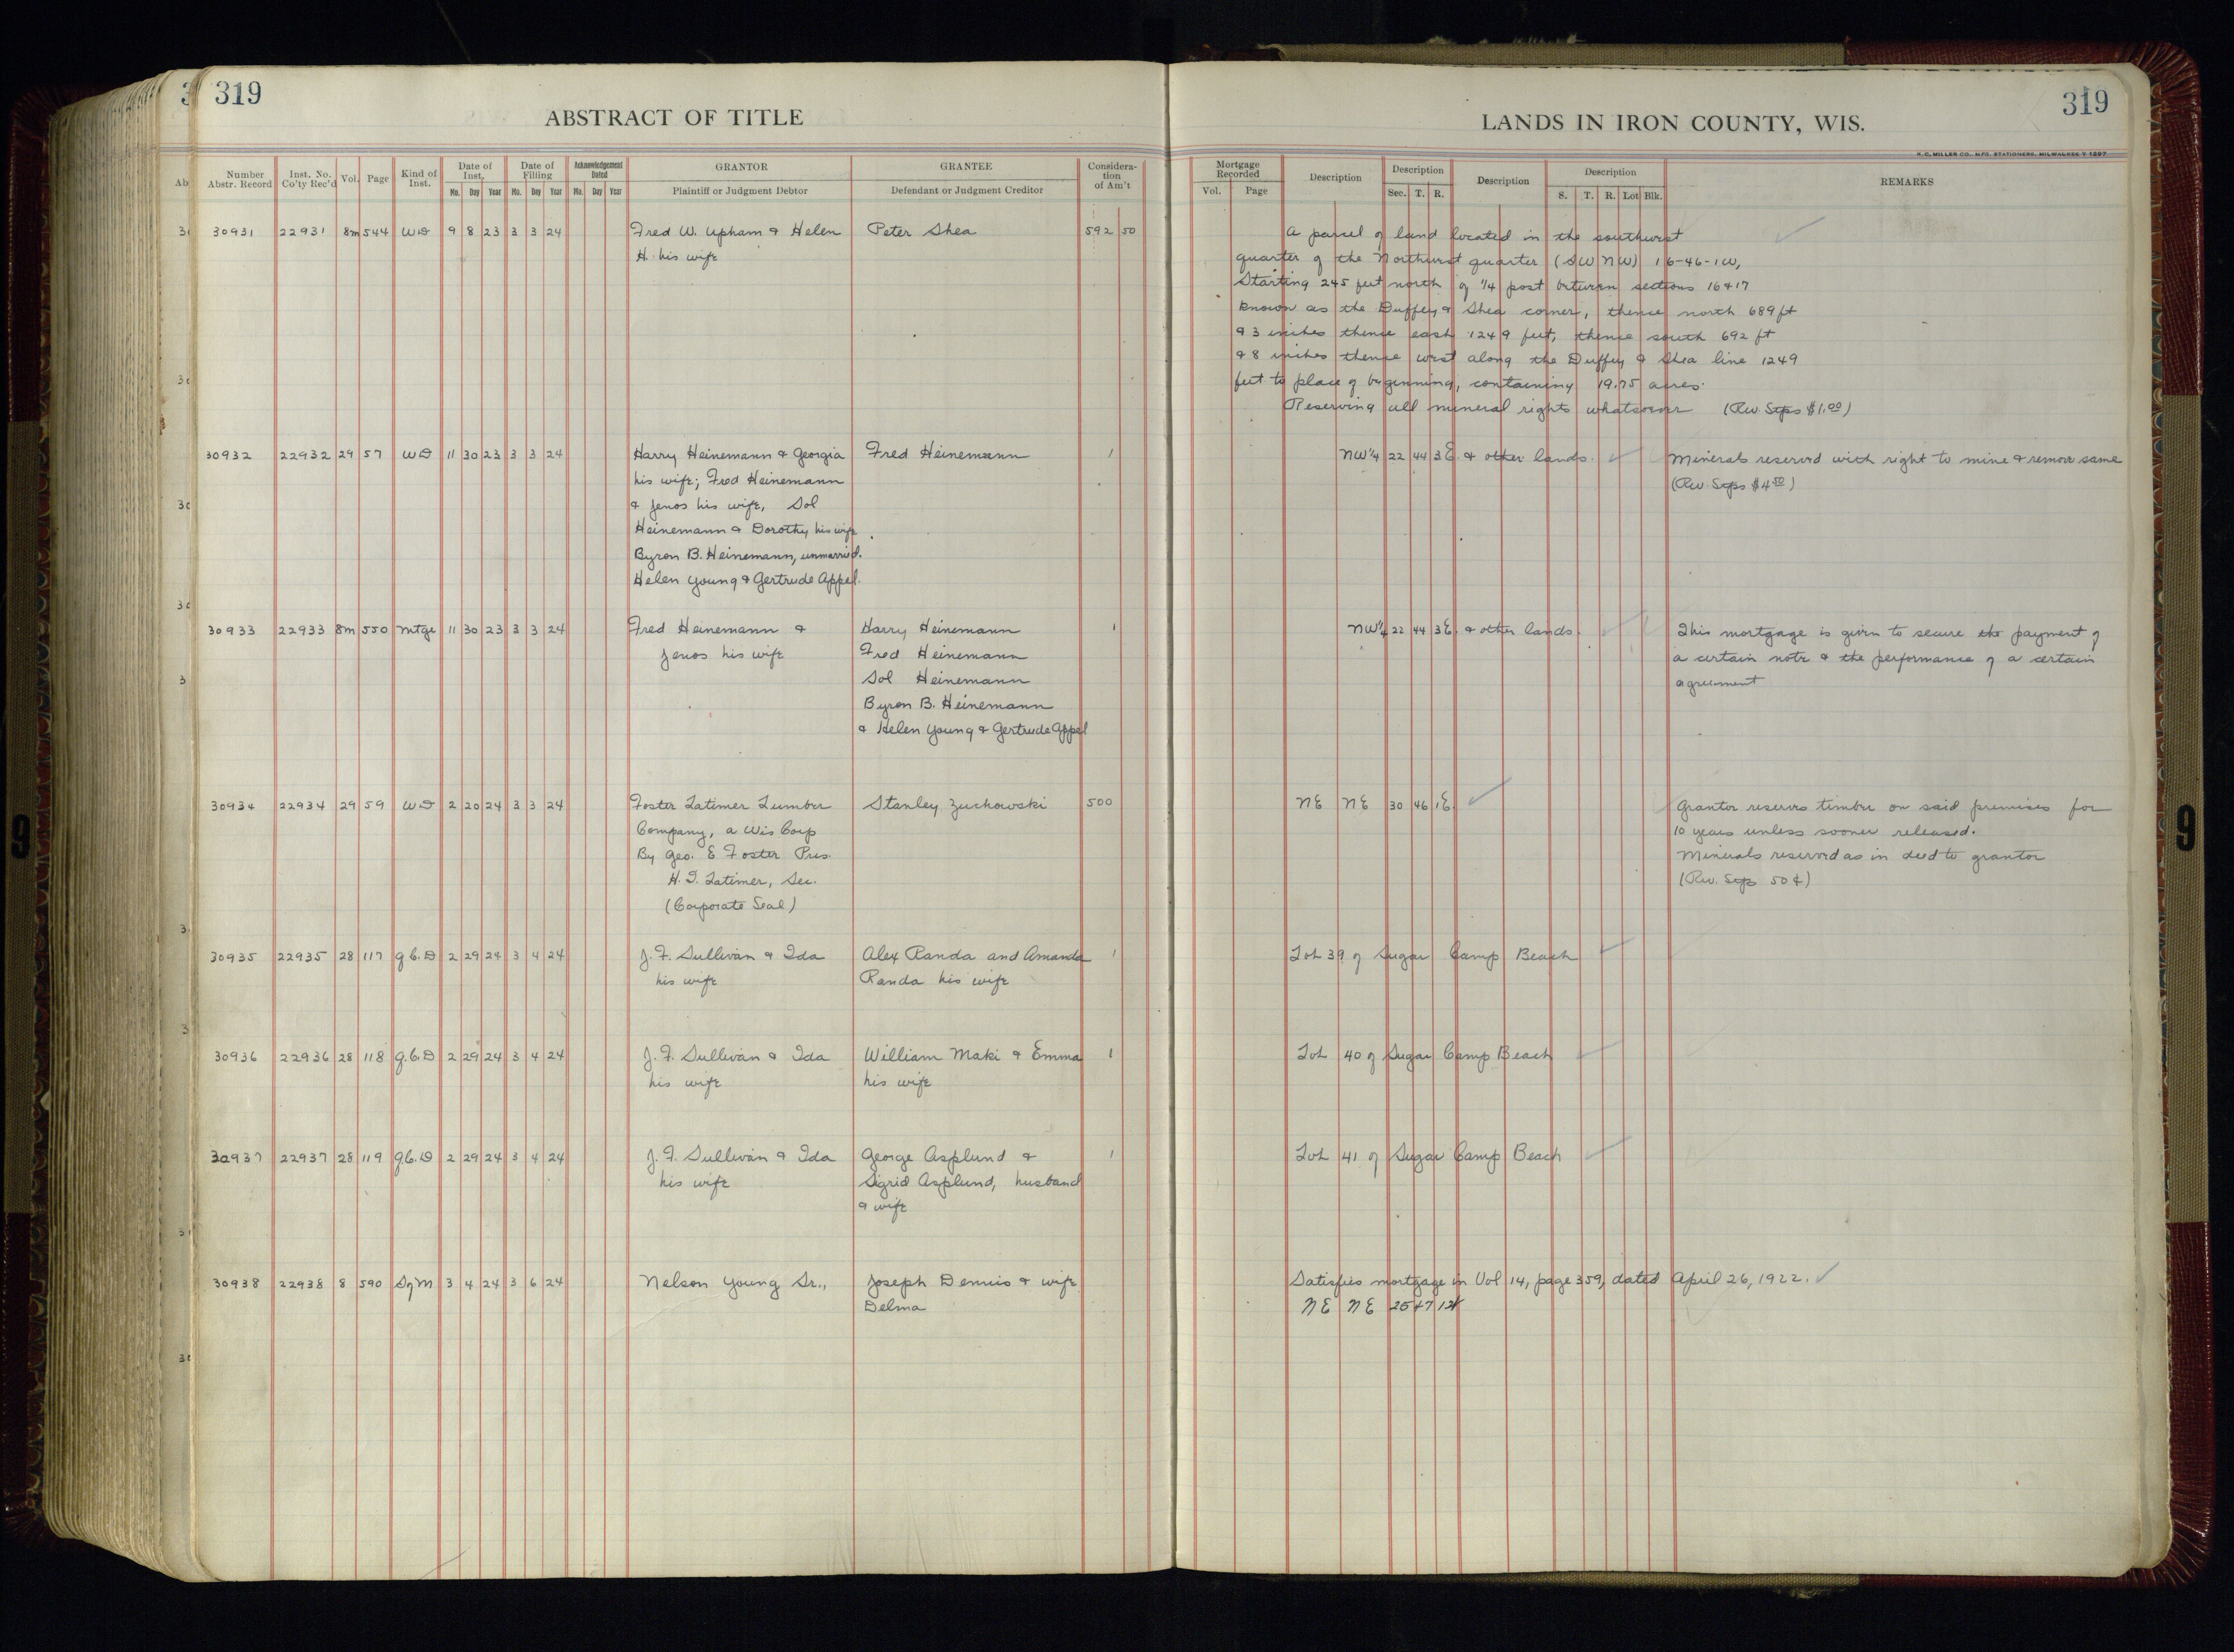 319
ABSTRACT OF TITLE
LANDS IN IRON COUNTY, WIS.
319
H. C. MILLER CO., MFG. STATIONERS, MILWAUKEE
Number Abstr. Record
Inst. No. Co'ty Rec'd
Vol.
Page
Kind of Inst.
Date of Inst.
Mo. Day Year
Date of Filling
Mo. Day Year
Acknowledgement Dated
Mo. Day Year
GRANTOR
Plaintiff or Judgment Debtor
GRANTEE
Defendant or Judgment Creditor
Considera-
tion
of Am't
Mortgage Recorded
Vol. Page
Description
Description
Sec. T. R.
Description
Description
S. T. R. Lot Blk.
REMARKS
30931 22931 8m 544 WD 9 8 23 3 3 24 Fred W. Upham & Helen Peter Shea 592 50 A parcel of land located in the southwest
H. his wife quarter of the Northwest quarter (SW NW) 16-46-1W,
Starting 245 feet north of 1/4 post between sections 16 & 17
known as the Duffey & Shea corner, thence north 689 ft
& 3 inches thence east 1249 feet, thence south 692 ft
& 8 inches thence west along the Duffey & Shea line 1249
feet to place of beginning, containing 19.75 acres.
Reserving all mineral rights whatsoever (Rev. Stps $1.00)
30932 22932 29 57 WD 11 30 23 3 3 24 Harry Heinemann & Georgia Fred Heinemann 1 NW1/4 22 44 3E. & other lands. Minerals reserved with right to mine & remove same
his wife; Fred Heinemann (Rev. Stps $4.50)
& Jenos his wife, Sol
Heinemann & Dorothy his wife
Byron B. Heinemann, unmarried.
Helen Young & Gertrude Appel.
30933 22933 8m 550 Mtge 11 30 23 3 3 24 Fred Heinemann & Harry Heinemann 1 NW1/4 22 44 3E. & other lands. This mortgage is given to secure the payment of
Jenos his wife Fred Heinemann a certain note & the performance of a certain
Sol Heinemann agreement
Byron B. Heinemann
& Helen Young & Gertrude Appel
30934 22934 29 59 WD 2 20 24 3 3 24 Foster Latimer Lumber Stanley Zuchowski 500 NE NE 30 46 1E. Grantor reserves timber on said premises for
Company, a Wis Corp 10 years unless sooner released.
By Geo. E Foster Pres. Minerals reserved as in deed to grantor
H. I. Latimer, Sec. (Rev. Stps 50¢)
(Corporate Seal)
30935 22935 28 117 Q.C.D 2 29 24 3 4 24 J. F. Sullivan & Ida Alex Randa and Amanda 1 Lot 39 of Sugar Camp Beach
his wife Randa his wife
30936 22936 28 118 Q.C.D 2 29 24 3 4 24 J. F. Sullivan & Ida William Maki & Emma 1 Lot 40 of Sugar Camp Beach
his wife his wife
30937 22937 28 119 Q.C.D 2 29 24 3 4 24 J. F. Sullivan & Ida George Asplund & 1 Lot 41 of Sugar Camp Beach
his wife Sigrid Asplund, husband
& wife
30938 22938 8 590 S of M 3 4 24 3 6 24 Nelson Young Sr., Joseph Dennis & wife Satisfies mortgage in Vol 14, page 359, dated April 26, 1922.
Delma NE NE 25 47 1W